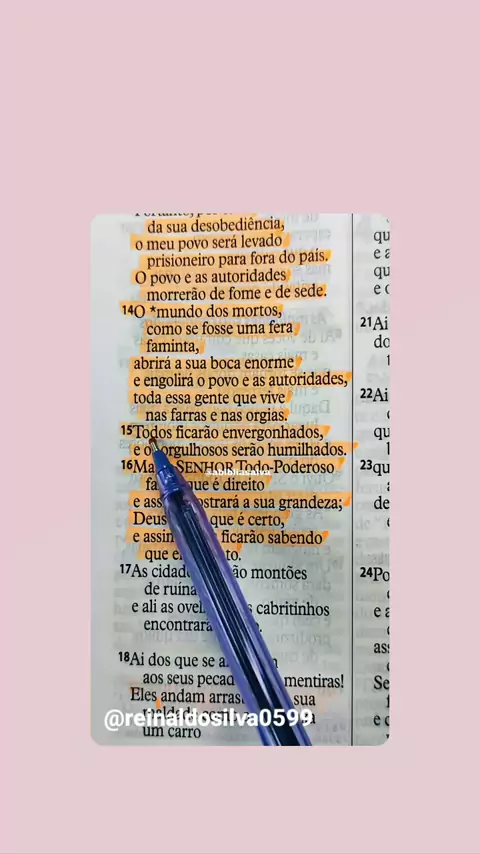 da sua desobediência,
o meu povo será levado
prisioneiro para fora do país.
O povo e as autoridades
morrerão de fome e de sede.
14O *mundo dos mortos,
como se fosse uma fera
faminta,
abrirá a sua boca enorme
e engolirá o povo e as autoridades,
toda essa gente que vive
nas farras e nas orgias.
15Todos ficarão envergonhados,
e os orgulhosos serão humilhados.
16Mas o SENHOR Todo-Poderoso
@abibliasalva
que é direito
e ostrará a sua grandeza;
Deus que é certo,
e assim ficarão sabendo
que
17As montões
de
e ali as cabritinhos
18Ai dos que se
aos seus mentiras!
Eles andam sua
@reinaldosilva0599
um carro
qu
e a
qu
e c
21Ai
do
22Ai
qu
23qu
de
24Po
e a
ass
Se
e c